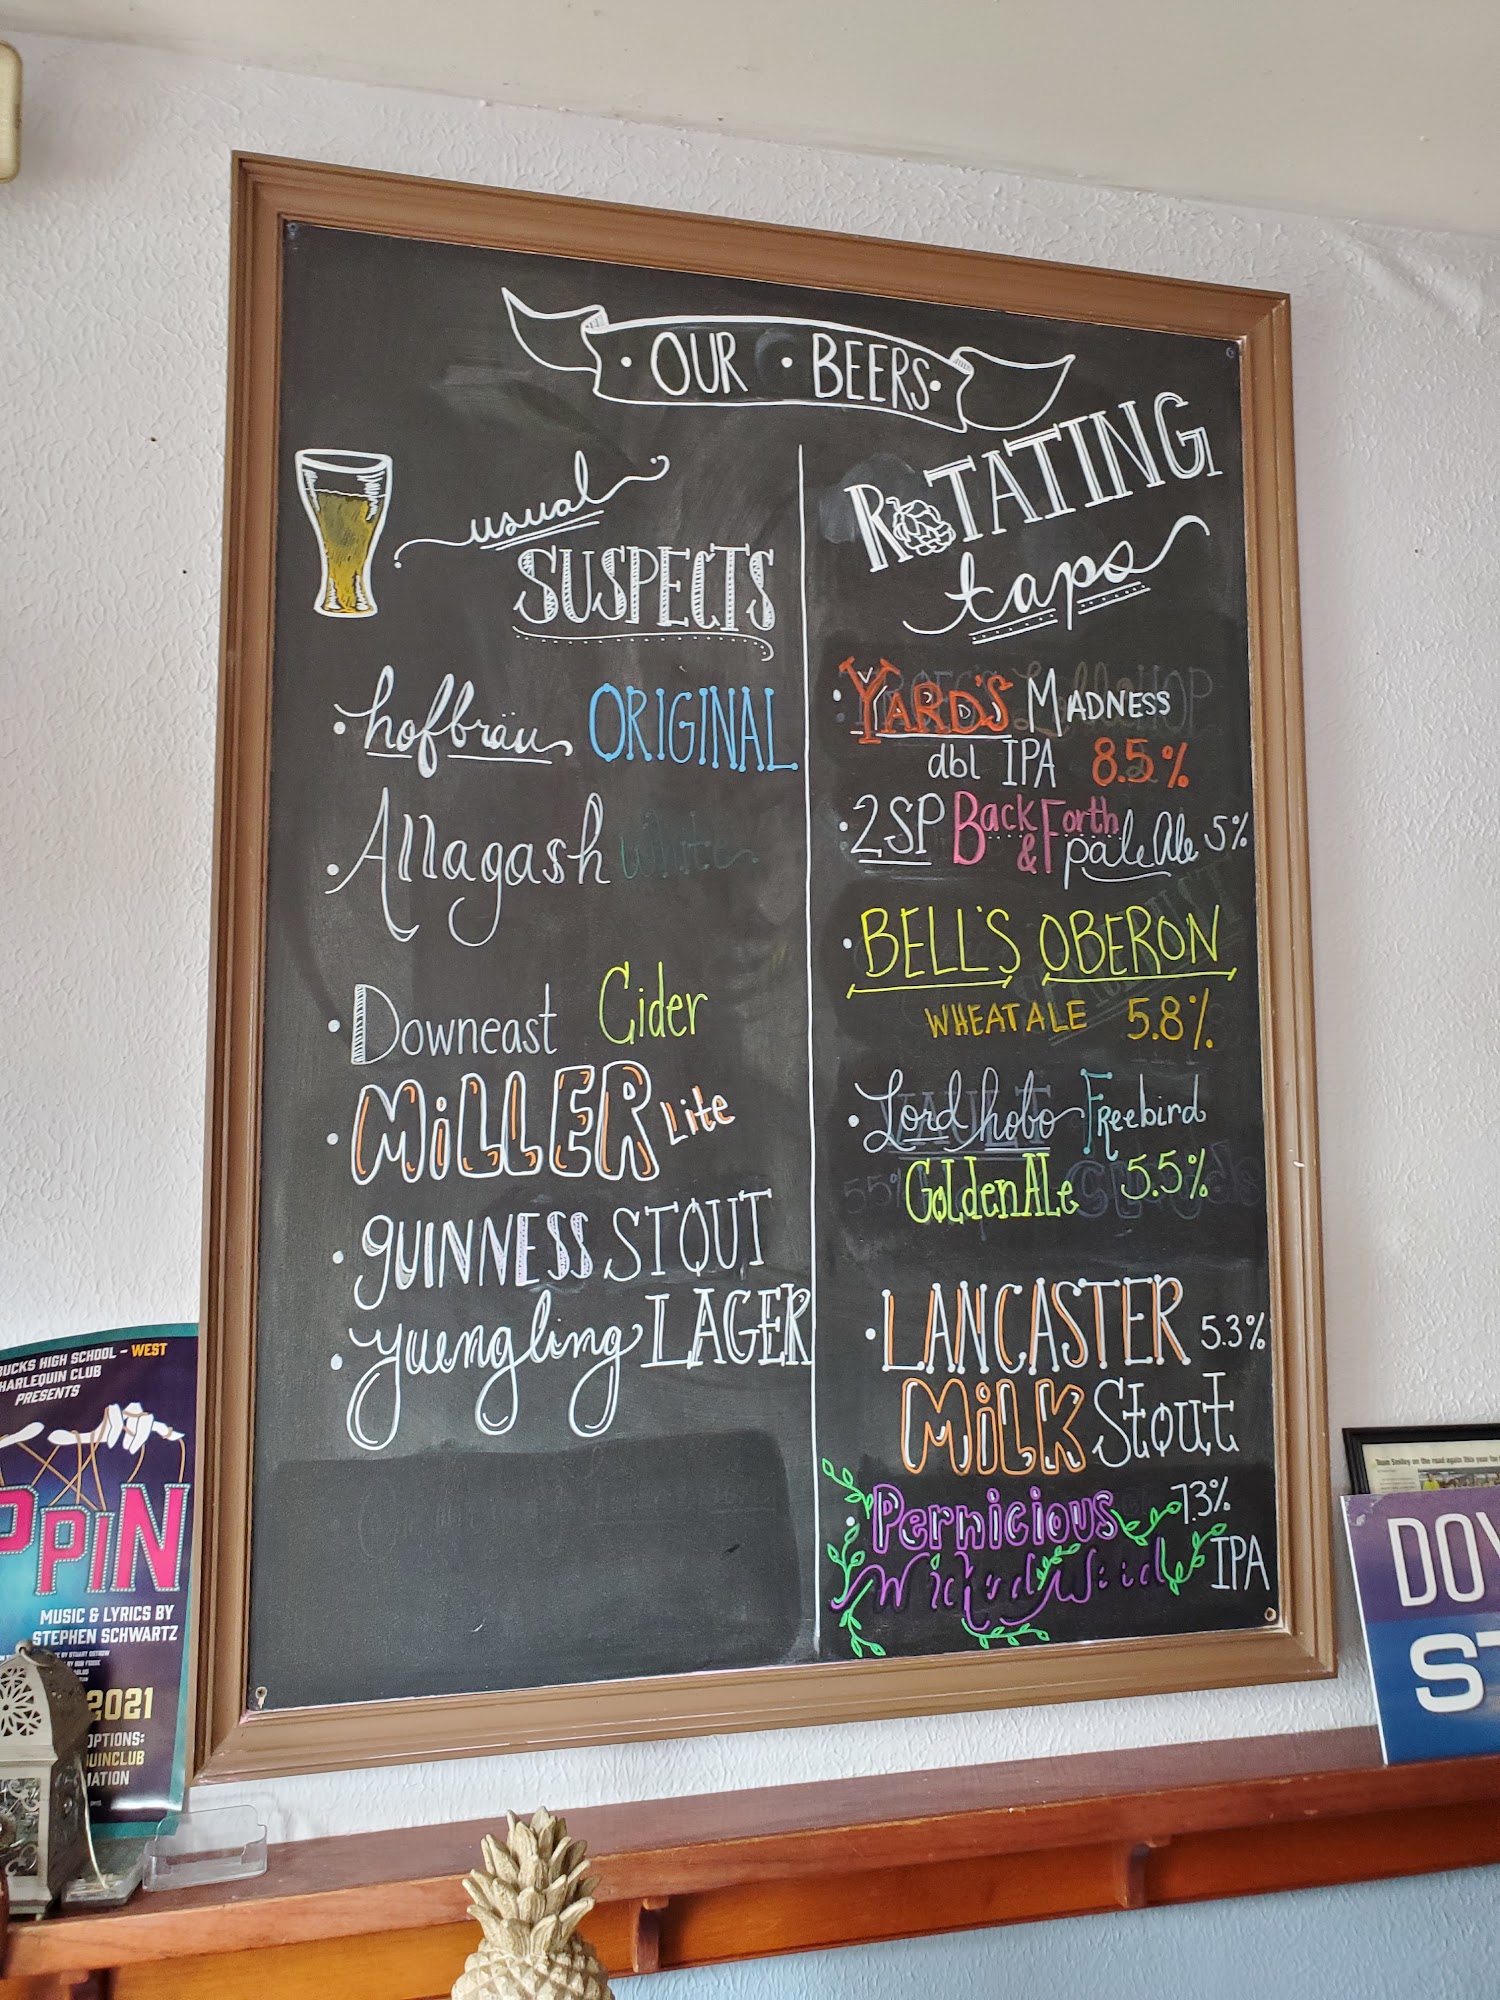 · OUR · BEERS ·
usual
SUSPECTS
· hofbräu ORIGINAL
· Allagash White
· Downeast Cider
· MiLLER Lite
· GUINNESS STOUT
· yuengling LAGER
ROTATING
taps
· YARD'S MADNESS
dbl IPA 8.5%
· 2SP Back & Forth pale Ale 5%
· BELL'S OBERON
WHEAT ALE 5.8%
· Lord hobo Freebird
Golden Ale 5.5%
· LANCASTER 5.3%
MiLK Stout
· Pernicious 7.3%
Wicked Weed IPA
BUCKS HIGH SCHOOL - WEST
HARLEQUIN CLUB
PRESENTS
PPiN
MUSIC & LYRICS BY
STEPHEN SCHWARTZ
2021
OPTIONS:
UINCLUB
MATION
Team Smiley on the road again this year for
DOY
ST